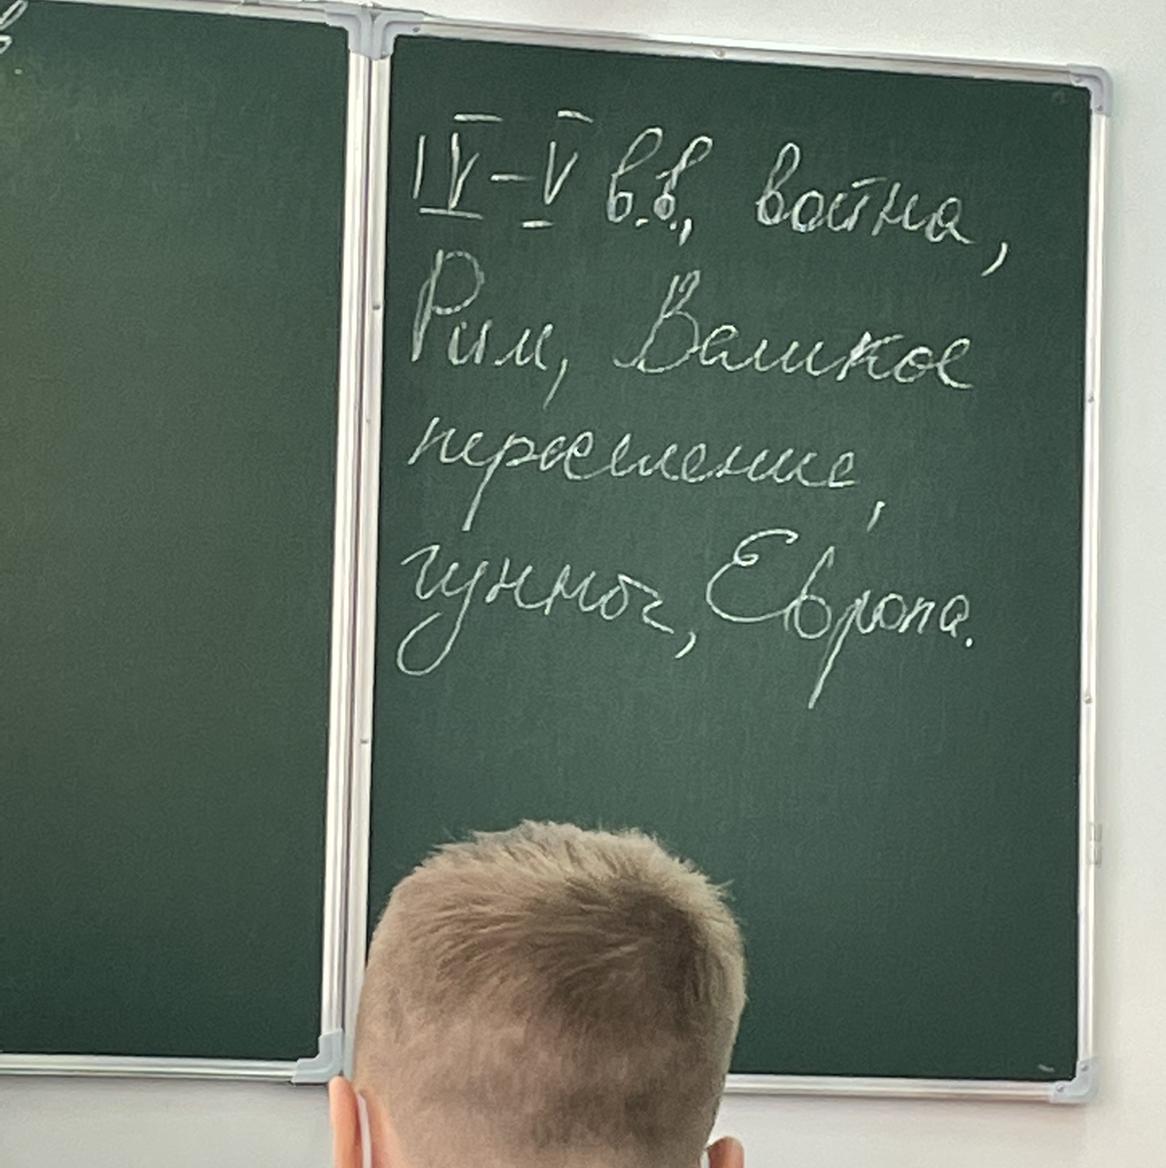 IV-V в.в., война,
Рим, Великое
переселение,
гунны, Европа.